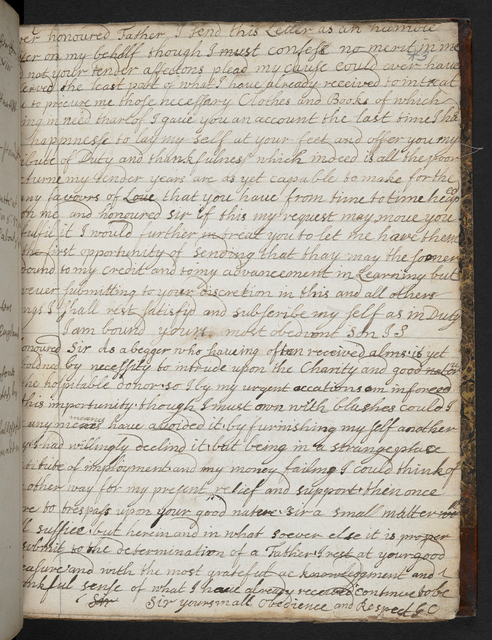 ver honoured Father, I send this Letter as an humble
er on my behalf though I must confess no merit in me
not your tender affections plead my cause could ever have
erved the least part of what I have already received to intreat
u to procure me those necessary Clothes and Books of which
ing in need tharof I gave you an account the last time I had
happinesse to lay my self at your feet and offer you my
ibute of Duty and thankfulness which indeed is all the poor
turne my tender years are as yet capable to make for the
any favours of Love that you have from time to time heap
on me, and honoured Sir if this my request may move you
fulfil it I would further intreat you to let me have them
the first opportunity of sending that thay may the sooner
ound to my credit and to my advancement in Learning but
ever submitting to your discretion in this and all others
ngs I shall rest satisfid and subscribe my self as in Duty
I am bound yours most obedient Son I S
onoured Sir As a begger who having often received alms is yet
oldned by necessity to intrude upon the Charity and good
he hospitable donor so I by my urgent occations am inforced
this importunity though I must own with blushes could I
any means have avoided it by furnishing my self another
ays had willingly declind it but being in a strange place
stitute of imployment and my money failing I could think of
other way for my present relief and support then once
re to trespass upon your good nature Sir a small matter
l suffice but herein and in what soever else it is proper
submit to the determination of a Father I rest at your good
easure and with the most grateful ac knowlegment and
ankful sense of what I have already received continue to be
Sir Sir yours in all obedience and Respect &C